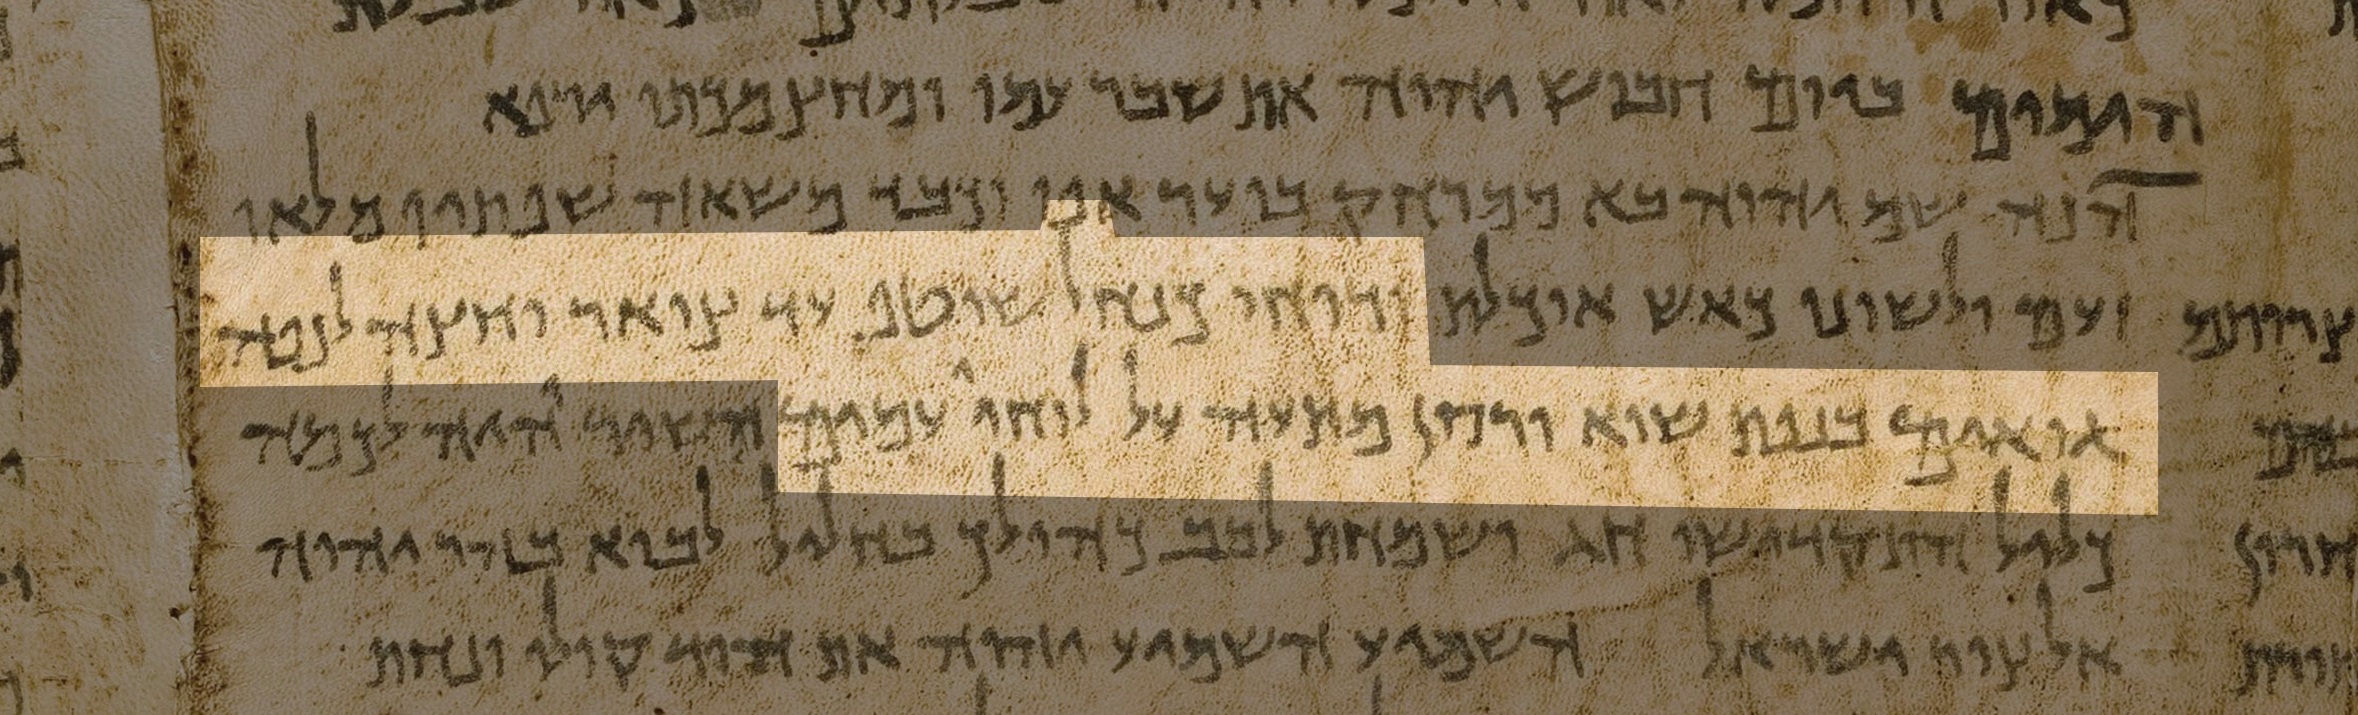 הימים ביום חבוש יהוה את שבר עמו ומחץ מכתו ירפא
הנה שם יהוה בא ממרחק בוער אפו וכבד משאוה שפתיו מלאו
זעם ולשונו כאש אוכלת ורוחו כנחל שוטף עד צואר יחצה לנפה
גואים בנפת שוא ורסן מתעה על לוחיי עמים השיר יהיה לכמה
כליל התקדישו חג ושמחת לבב כהולך בחליל לבוא בהר יהוה
אל צור ישראל השמיע השמיע יהוה את הוד קולו ונחת